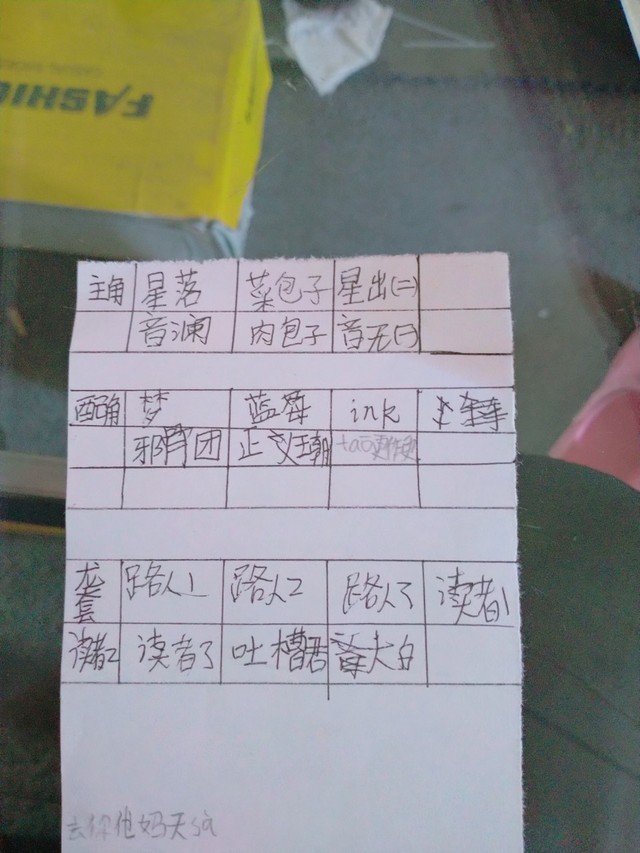 FASHIO
主角 星落 菜包子 星出(二)
音澜 肉包子 音无(弓)
配角 梦 蓝莓 ink
邪骨团 正义王朝 tao
龙套 路人1 路人2 路人3 读者1
读者2 读者3 吐槽君 大白
去你他妈天sa